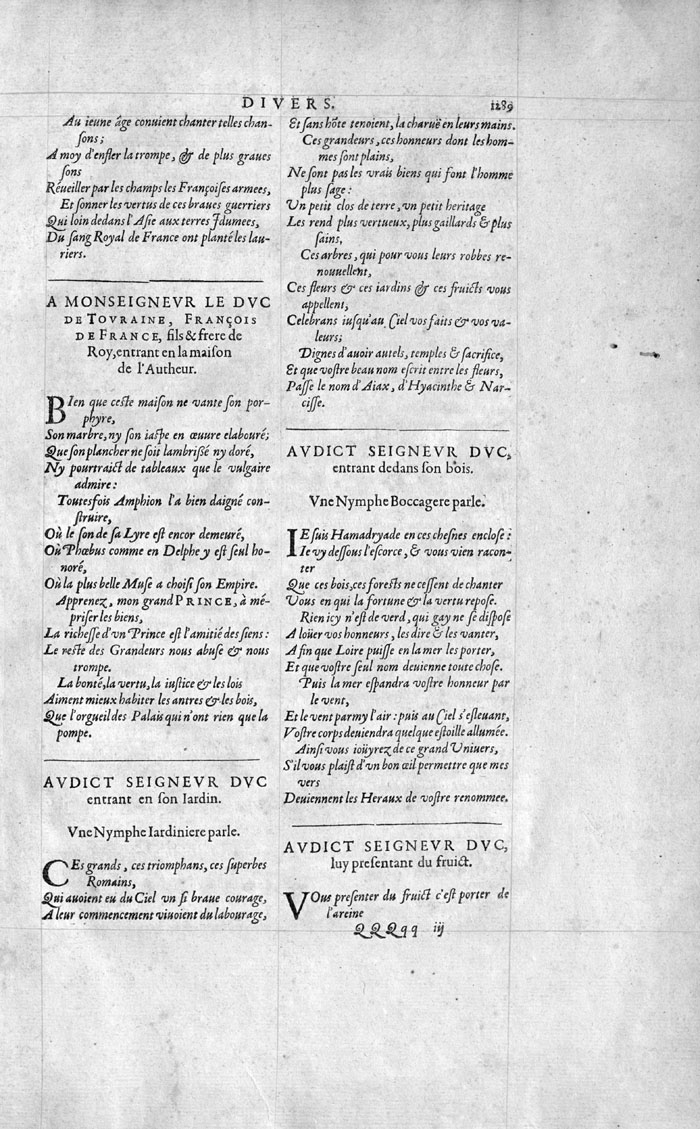 DIVERS. 1289
Au ieune âge conuient chanter telles chan-
sons;
A moy d'enfler la trompe, & de plus graues
sons
Réueiller par les champs les Françoises armees,
Et sonner les vertus de ces braues guerriers
Qui loin dedans l'Asie aux terres Idumees,
Du sang Royal de France ont planté les lau-
riers.
A MONSEIGNEVR LE DVC
DE TOVRAINE, FRANÇOIS
DE FRANCE, fils & frere de
Roy, entrant en la maison
de l'Autheur.
BIen que ceste maison ne vante son por-
phyre,
Son marbre, ny son iaspe en œuure elabouré;
Que son plancher ne soit lambrissé ny doré,
Ny pourtraict de tableaux que le vulgaire
admire:
Toutesfois Amphion l'a bien daigné con-
struire,
Où le son de sa Lyre est encor demeuré,
Où Phœbus comme en Delphe y est seul ho-
noré,
Où la plus belle Muse a choisi son Empire.
Apprenez, mon grand PRINCE, à mé-
priser les biens,
La richesse d'vn Prince est l'amitié des siens:
Le reste des Grandeurs nous abuse & nous
trompe.
La bonté, la vertu, la iustice & les lois
Aiment mieux habiter les antres & les bois,
Que l'orgueil des Palais qui n'ont rien que la
pompe.
AVDICT SEIGNEVR DVC
entrant en son Iardin.
Vne Nymphe Iardiniere parle.
CEs grands, ces triomphans, ces superbes
Romains,
Qui auoient eu du Ciel vn si braue courage,
A leur commencement viuoient du labourage,
Et sans hôte tenoient, la charuë en leurs mains.
Ces grandeurs, ces honneurs dont les hom-
mes sont plains,
Ne sont pas les vrais biens qui font l'homme
plus sage:
Vn petit clos de terre, vn petit heritage
Les rend plus vertueux, plus gaillards & plus
sains,
Ces arbres, qui pour vous leurs robbes re-
nouuellent,
Ces fleurs & ces iardins & ces fruicts vous
appellent;
Celebrans iusqu'au Ciel vos faits & vos va-
leurs;
Dignes d'auoir autels, temples & sacrifice,
Et que vostre beau nom escrit entre les fleurs,
Passe le nom d'Aiax, d'Hyacinthe & Nar-
cisse.
AVDICT SEIGNEVR DVC,
entrant dedans son bois.
Vne Nymphe Boccagere parle.
IE suis Hamadryade en ces chesnes enclose:
Ie vy dessous l'escorce, & vous vien racon-
ter
Que ces bois, ces forests ne cessent de chanter
Vous en qui la fortune & la vertu repose.
Rien icy n'est de verd, qui gay ne se dispose
A loüer vos honneurs, les dire & les vanter,
A fin que Loire puisse en la mer les porter,
Et que vostre seul nom deuienne toute chose.
Puis la mer espandra vostre honneur par
le vent,
Et le vent parmy l'air: puis au Ciel s'esleuant,
Vostre corps deuiendra quelque estoille allumée.
Ainsi vous ioüyrez de ce grand Vniuers,
S'il vous plaist d'vn bon œil permettre que mes
vers
Deuiennent les Heraux de vostre renommee.
AVDICT SEIGNEVR DVC,
luy presentant du fruict.
VOus presenter du fruict c'est porter de
l'areine
QQQqq iij